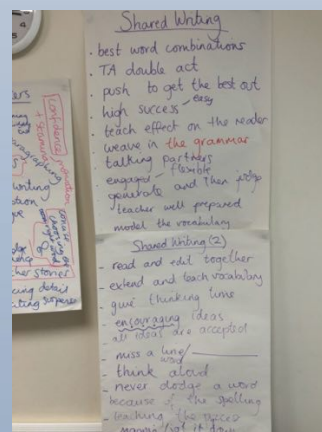 Shared Writing
. best word combinations
. TA double act
. push to get the best out
. high success - easy
. teach effect on the reader
. weave in the grammar
. talking partners
. engaged - flexible
. generate and then judge
. teacher well prepared
model the vocabulary
Shared Writing (2)
- read and edit together
- extend and teach vocabulary
- give thinking time
- encouraging ideas
all ideas are accepted
- miss a line/word
- think aloud
- never dodge a word
because of the spelling
- teaching the
confidence
writing
her stories
cing detail